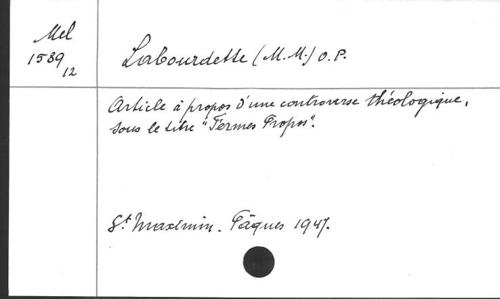 Mel
1539
12
Labourdette (M.M.) O.P.
Article à propos d'une controverse théologique,
sous le titre "Fermes Propos".
St Maximin. Pâques 1947.